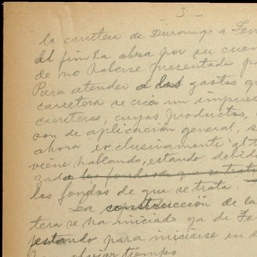 3
la carretera de Durango a Te
del fin la obra por su cuen
de no haberse presentado p
Para atender a los gastos q
carretera se crea un impues
carreteras, cuyos productos,
son de aplicación general, s
ahora exclusivamente al t
viene hablando, estando debid
los fondos de que se trata.
La construcción de la
tera se ha iniciado ya de Te
estando para iniciarse en e